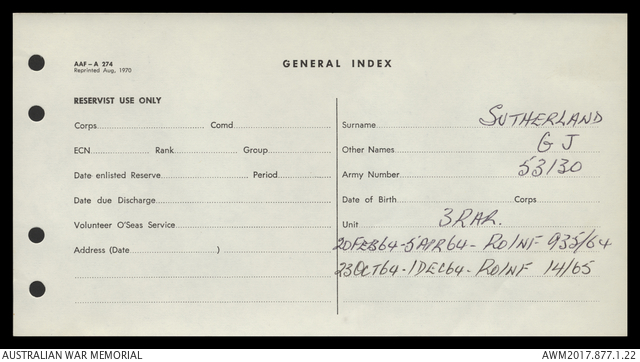 AAF – A 274
Reprinted Aug, 1970
GENERAL INDEX
RESERVIST USE ONLY
Corps Comd
ECN Rank Group
Date enlisted Reserve Period
Date due Discharge
Volunteer O'Seas Service
Address (Date )
Surname SUTHERLAND
Other Names G J
Army Number 53130
Date of Birth Corps
Unit 3 RAR.
20 FEB 64 - 5 APR 64 - RO/INF 935/64
23 OCT 64 - 1 DEC 64 - RO/INF 14/65
AUSTRALIAN WAR MEMORIAL AWM2017.877.1.22